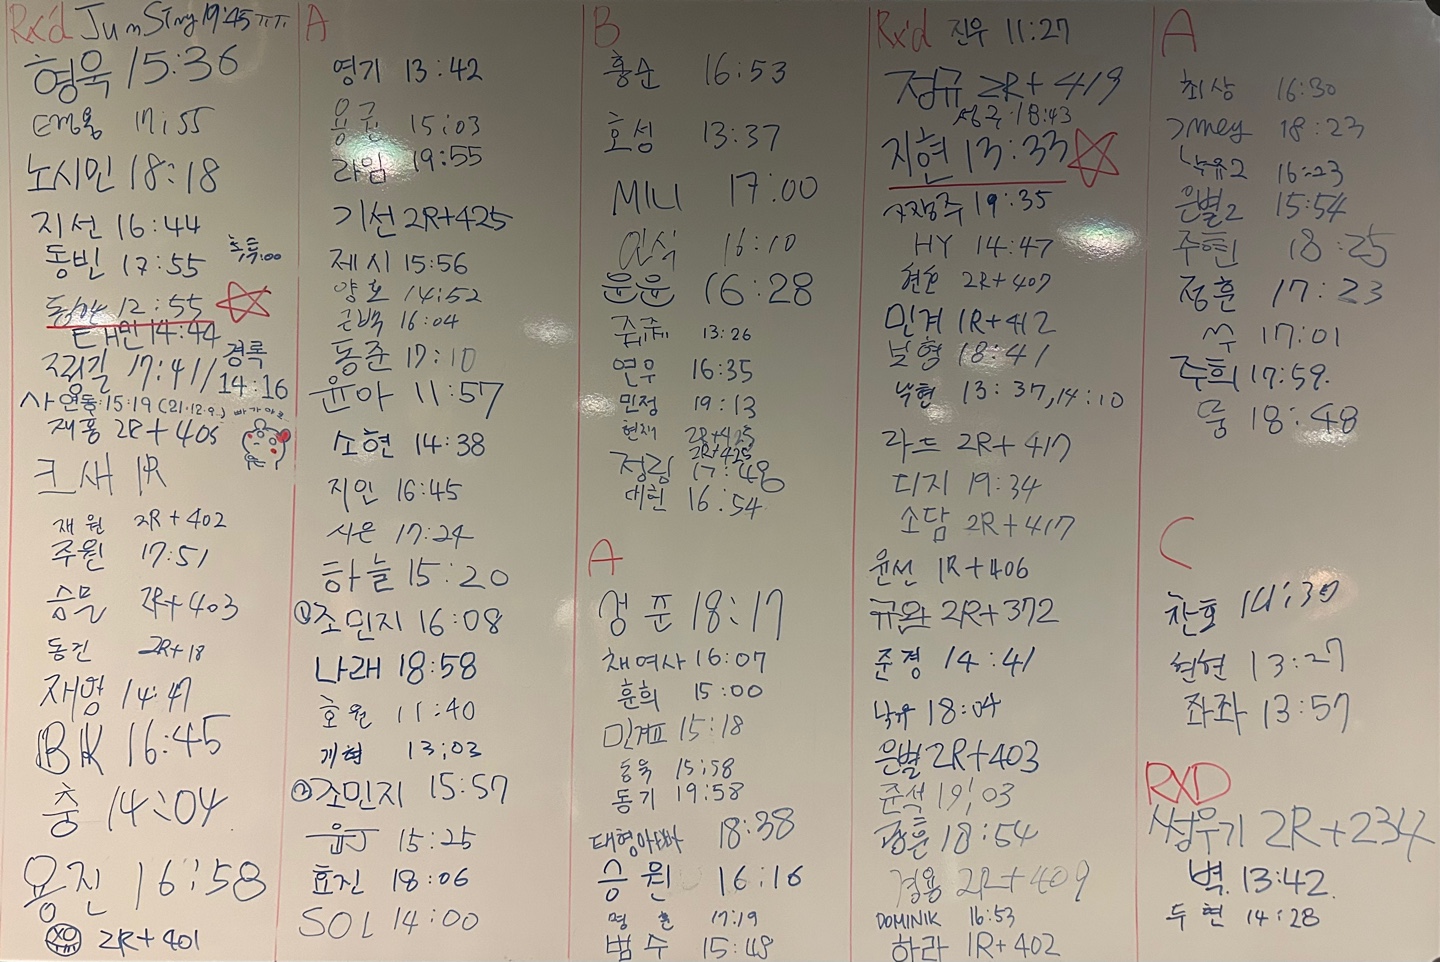 Rx'd JunSing 19:45 ㅠㅠ
형욱 15:36
17:55
노시민 18:18
지선 16:44
동빈 17:55
12:55
태민 14:44
17:41
경록
14:16
사연동:15:19 (21.12.9.) 빠가야로
재풍 2R+405
크새 1R
재원 2R+402
주원 17:51
승문 2R+403
동건 2R+18
재영 14:47
BK 16:45
충 14:04
용진 16:58
2R+401
A
영기 13:42
용궁 15:03
라임 19:55
기선 2R+425
제시 15:56
양호 14:52
근백 16:04
동준 17:10
윤아 11:57
소현 14:38
지인 16:45
시은 17:24
하늘 15:20
① 조민지 16:08
나래 18:58
호원 11:40
개현 13:03
② 조민지 15:57
윤J 15:25
효진 18:06
SOL 14:00
B
홍순 16:53
호성 13:37
MINI 17:00
인식 16:10
윤윤 16:28
쥬쥬 13:26
연우 16:35
민정 19:13
현재 2R+425
2R+425
정림 17:48
대현 16:54
A
성준 18:17
채여사 16:07
훈희 15:00
민계표 15:18
동욱 15:58
동기 19:58
대형아빠 18:38
승원 16:16
명훈 17:19
범수 15:48
Rx'd 진우 11:27
정규 2R+419
성주:18:43
지현 13:33
19:35
HY 14:47
현온 2R+407
민계 1R+412
보형 18:41
낙현 13:37, 14:10
라드 2R+417
디지 19:34
소담 2R+417
윤선 1R+406
규완 2R+372
준경 14:41
낙유 18:04
은별 2R+403
준석 19:03
광훈 18:54
경용 2R+409
DOMINIK 16:53
하라 1R+402
A
최상 16:30
18:23
낙유2 16:23
은별2 15:54
주현 18:25
정훈 17:23
17:01
주희 17:59.
뭉 18:48
C
찬호 14:30
현현 13:27
좌좌 13:57
RXD
쌉우기 2R+234
벽 13:42
두현 14:28